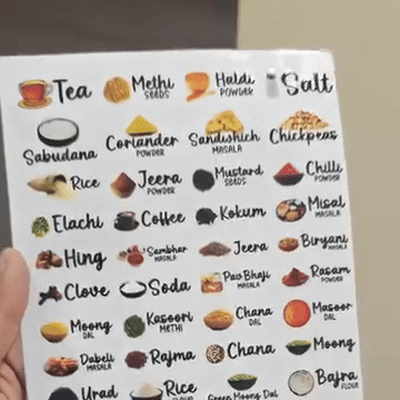 Tea Methi SEEDS Haldi POWDER Salt
Sabudana Coriander POWDER Sandwhich MASALA Chickpeas
Rice Jeera POWDER Mustard SEEDS Chilli POWDER
Elachi Coffee Kokum Misal MASALA
Hing Sambhar MASALA Jeera Biryani MASALA
Clove Soda Pav Bhaji MASALA Rasam POWDER
Moong DAL Kasoori METHI Chana DAL Masoor DAL
Dabeli MASALA Rajma Chana Moong
Urad Rice FLOUR Green Moong Dal Bajra FLOUR